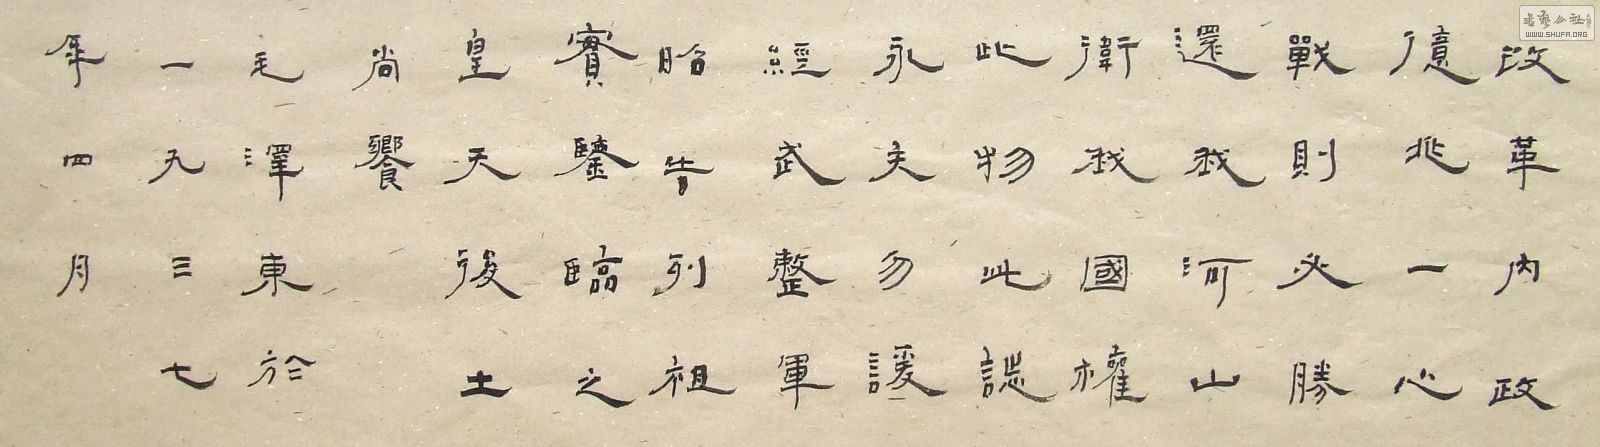 改革内政
億兆一心
戰則必勝
還我河山
衛我國權
此物此誌
永矢勿諼
經武整軍
昭告列祖
實鑒臨之
皇天後土
尚饗
毛澤東於
一九三七
年四月
書藝公社
WWW.SHUFA.ORG